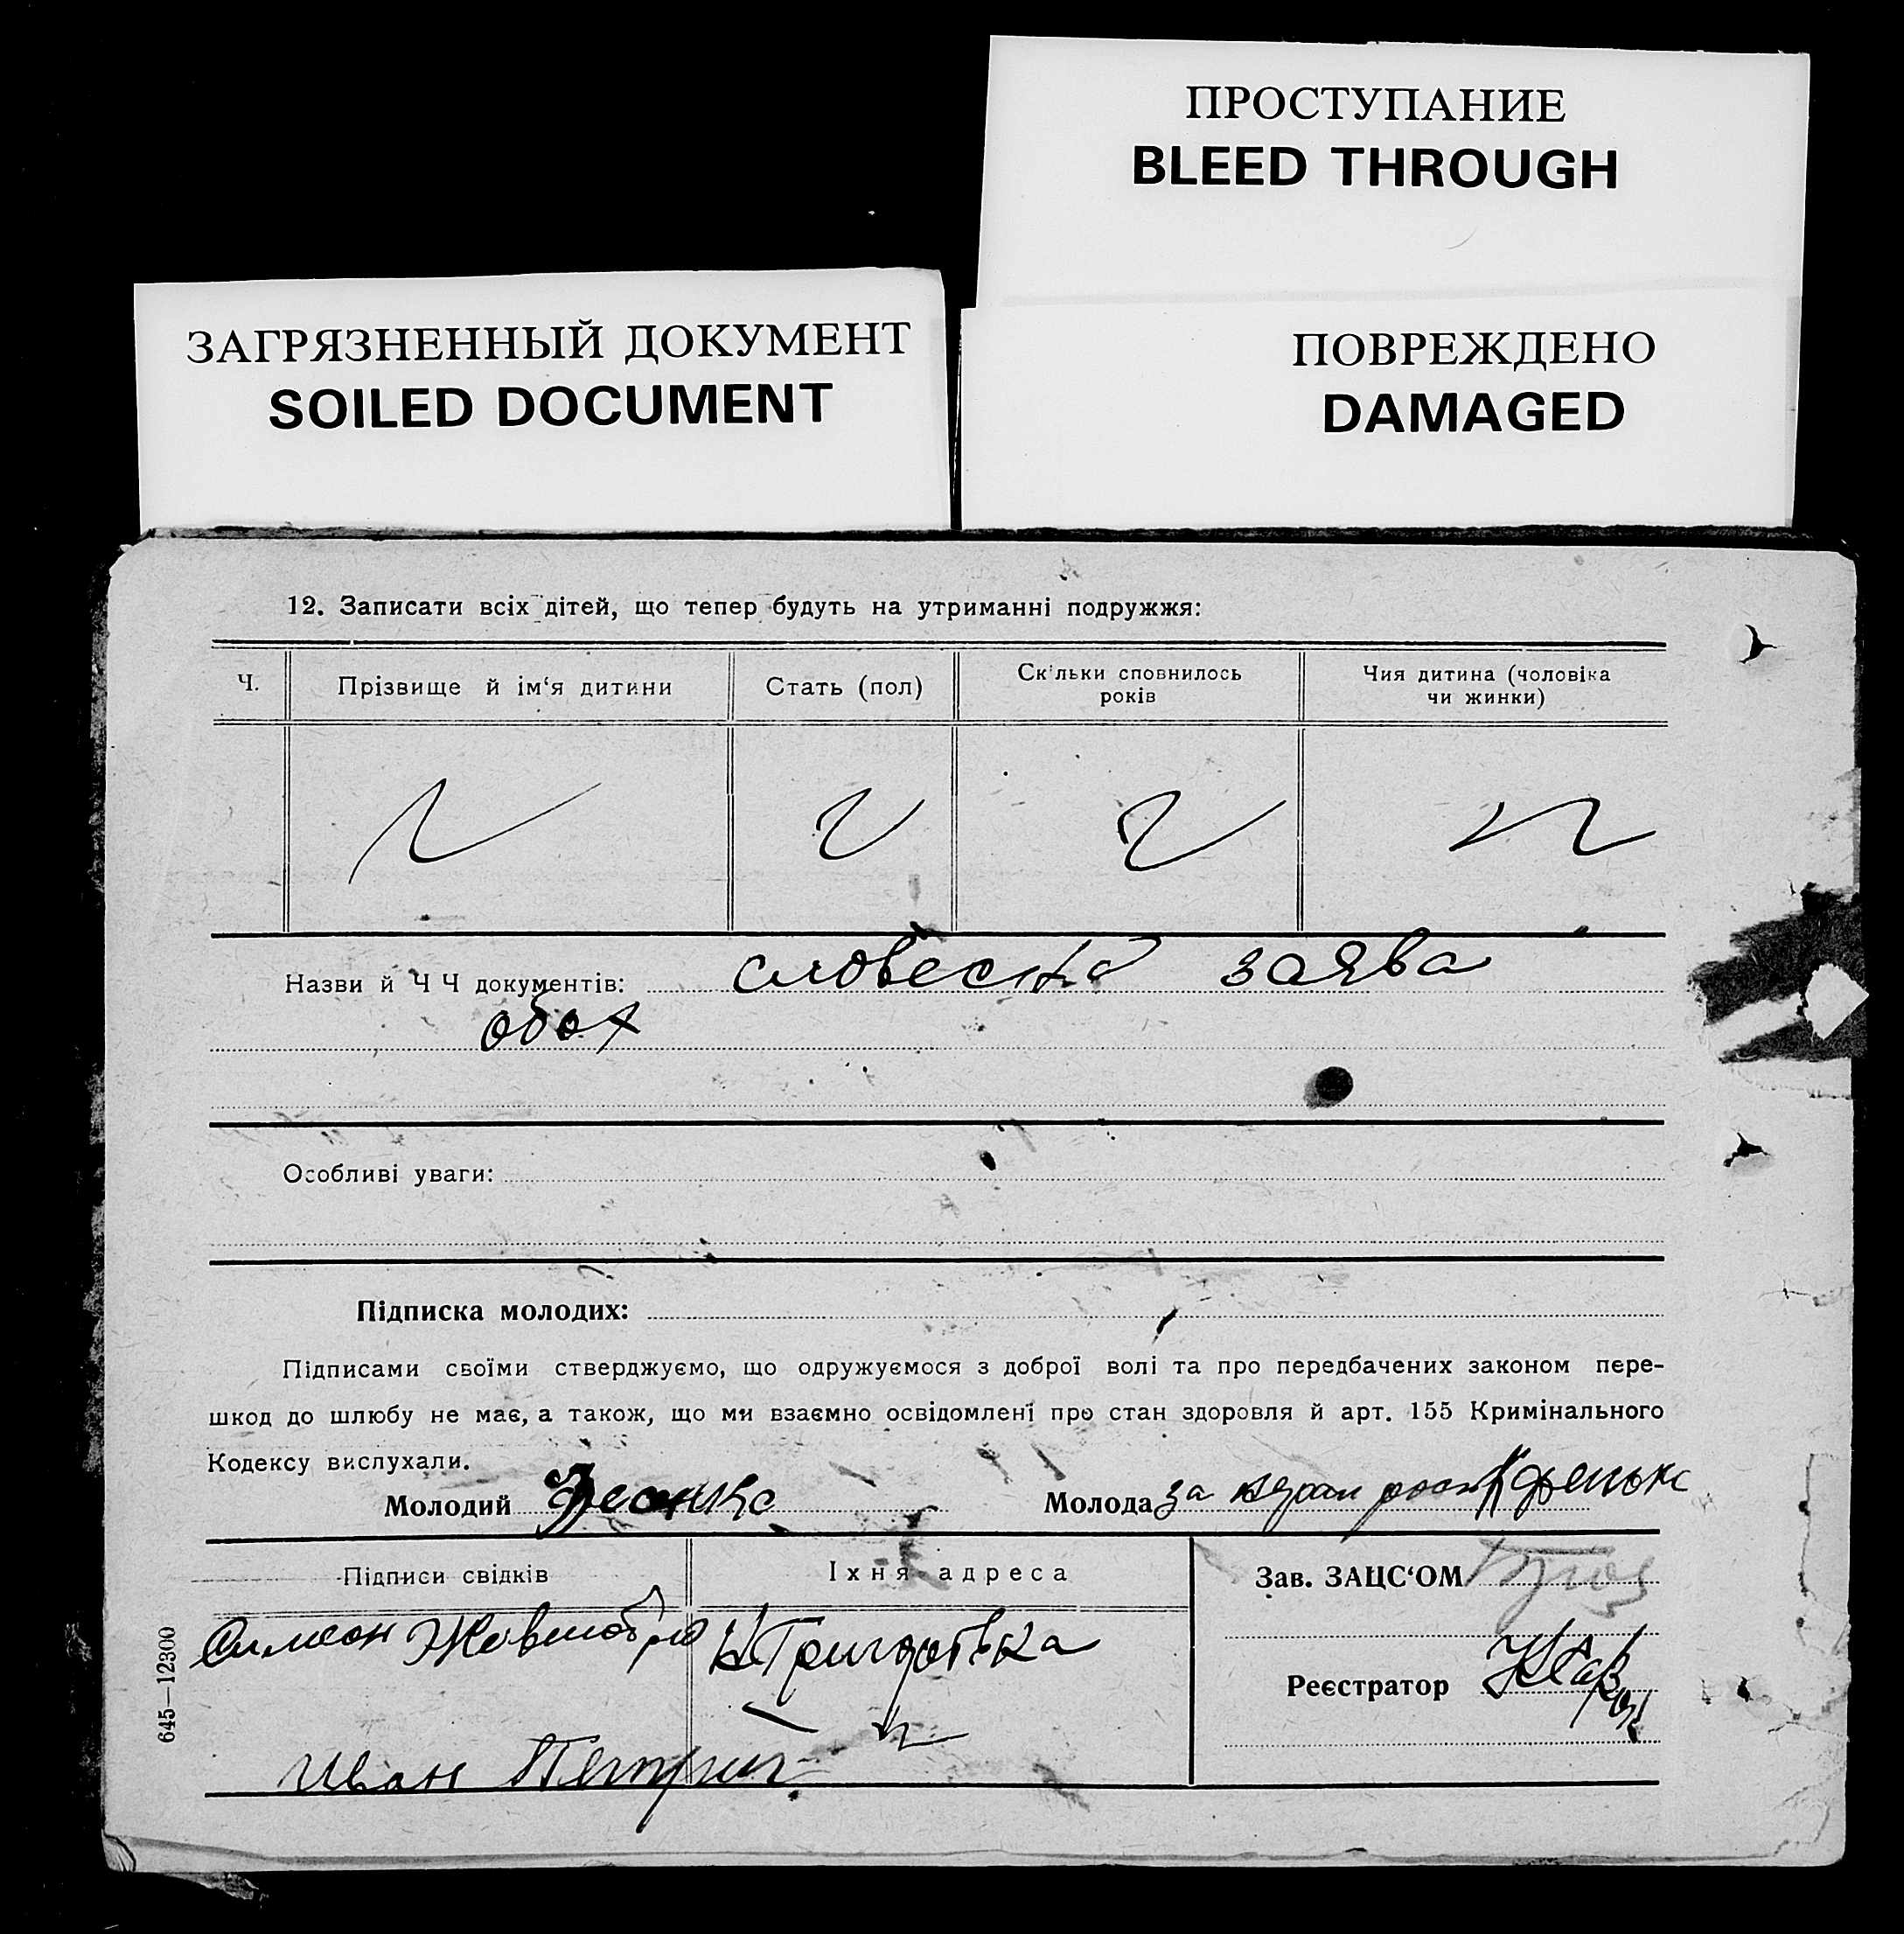 ПРОСТУПАНИЕ
BLEED THROUGH
ЗАГРЯЗНЕННЫЙ ДОКУМЕНТ
SOILED DOCUMENT
ПОВРЕЖДЕНО
DAMAGED
12. Записати всіх дітей, що тепер будуть на утриманні подружжя:
Ч.
Прізвище й ім‘я дитини
Стать (пол)
Скільки сповнилось
років
Чия дитина (чоловіка
чи жинки)
Назви й Ч Ч документів: словесна заява
обох
Особливі уваги:
Підписка молодих:
Підписами своїми стверджуємо, що одружуємося з доброї волі та про передбачених законом пере-
шкод до шлюбу не має, а також, що ми взаємно освідомлені про стан здоровля й арт. 155 Кримінального
Кодексу вислухали.
Молодий
Молода за
Підписи свідків
Їхня адреса
Зав. ЗАЦС‘ОМ
Реєстратор
Иван
645—12300